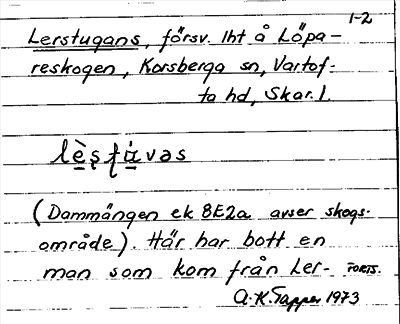 1-2
Lerstugans, försv. lht å Löpa-
reskogen, Korsberga sn, Vartof-
ta hd, Skar. l.
(Dammängen ek 8E2a avser skogs-
område). Här har bott en
man som kom från Ler- FORTS.
A.-K. Tapper 1973